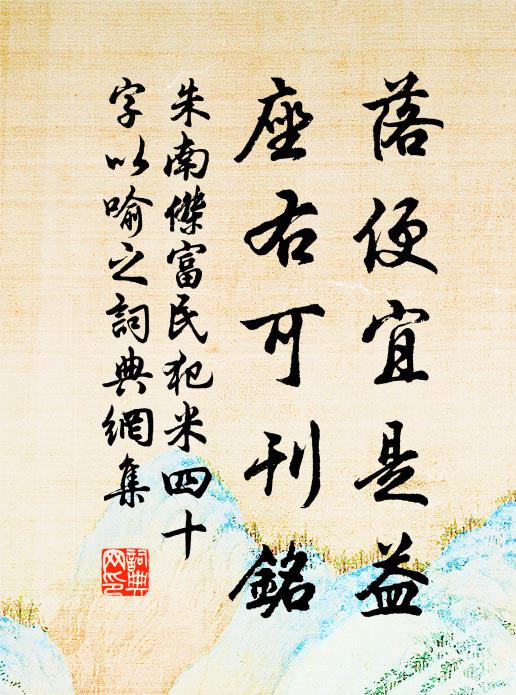 落便宜是益
座右可刊銘
朱南傑富民犯米四十
字以喻之詞典網集
詞典網印